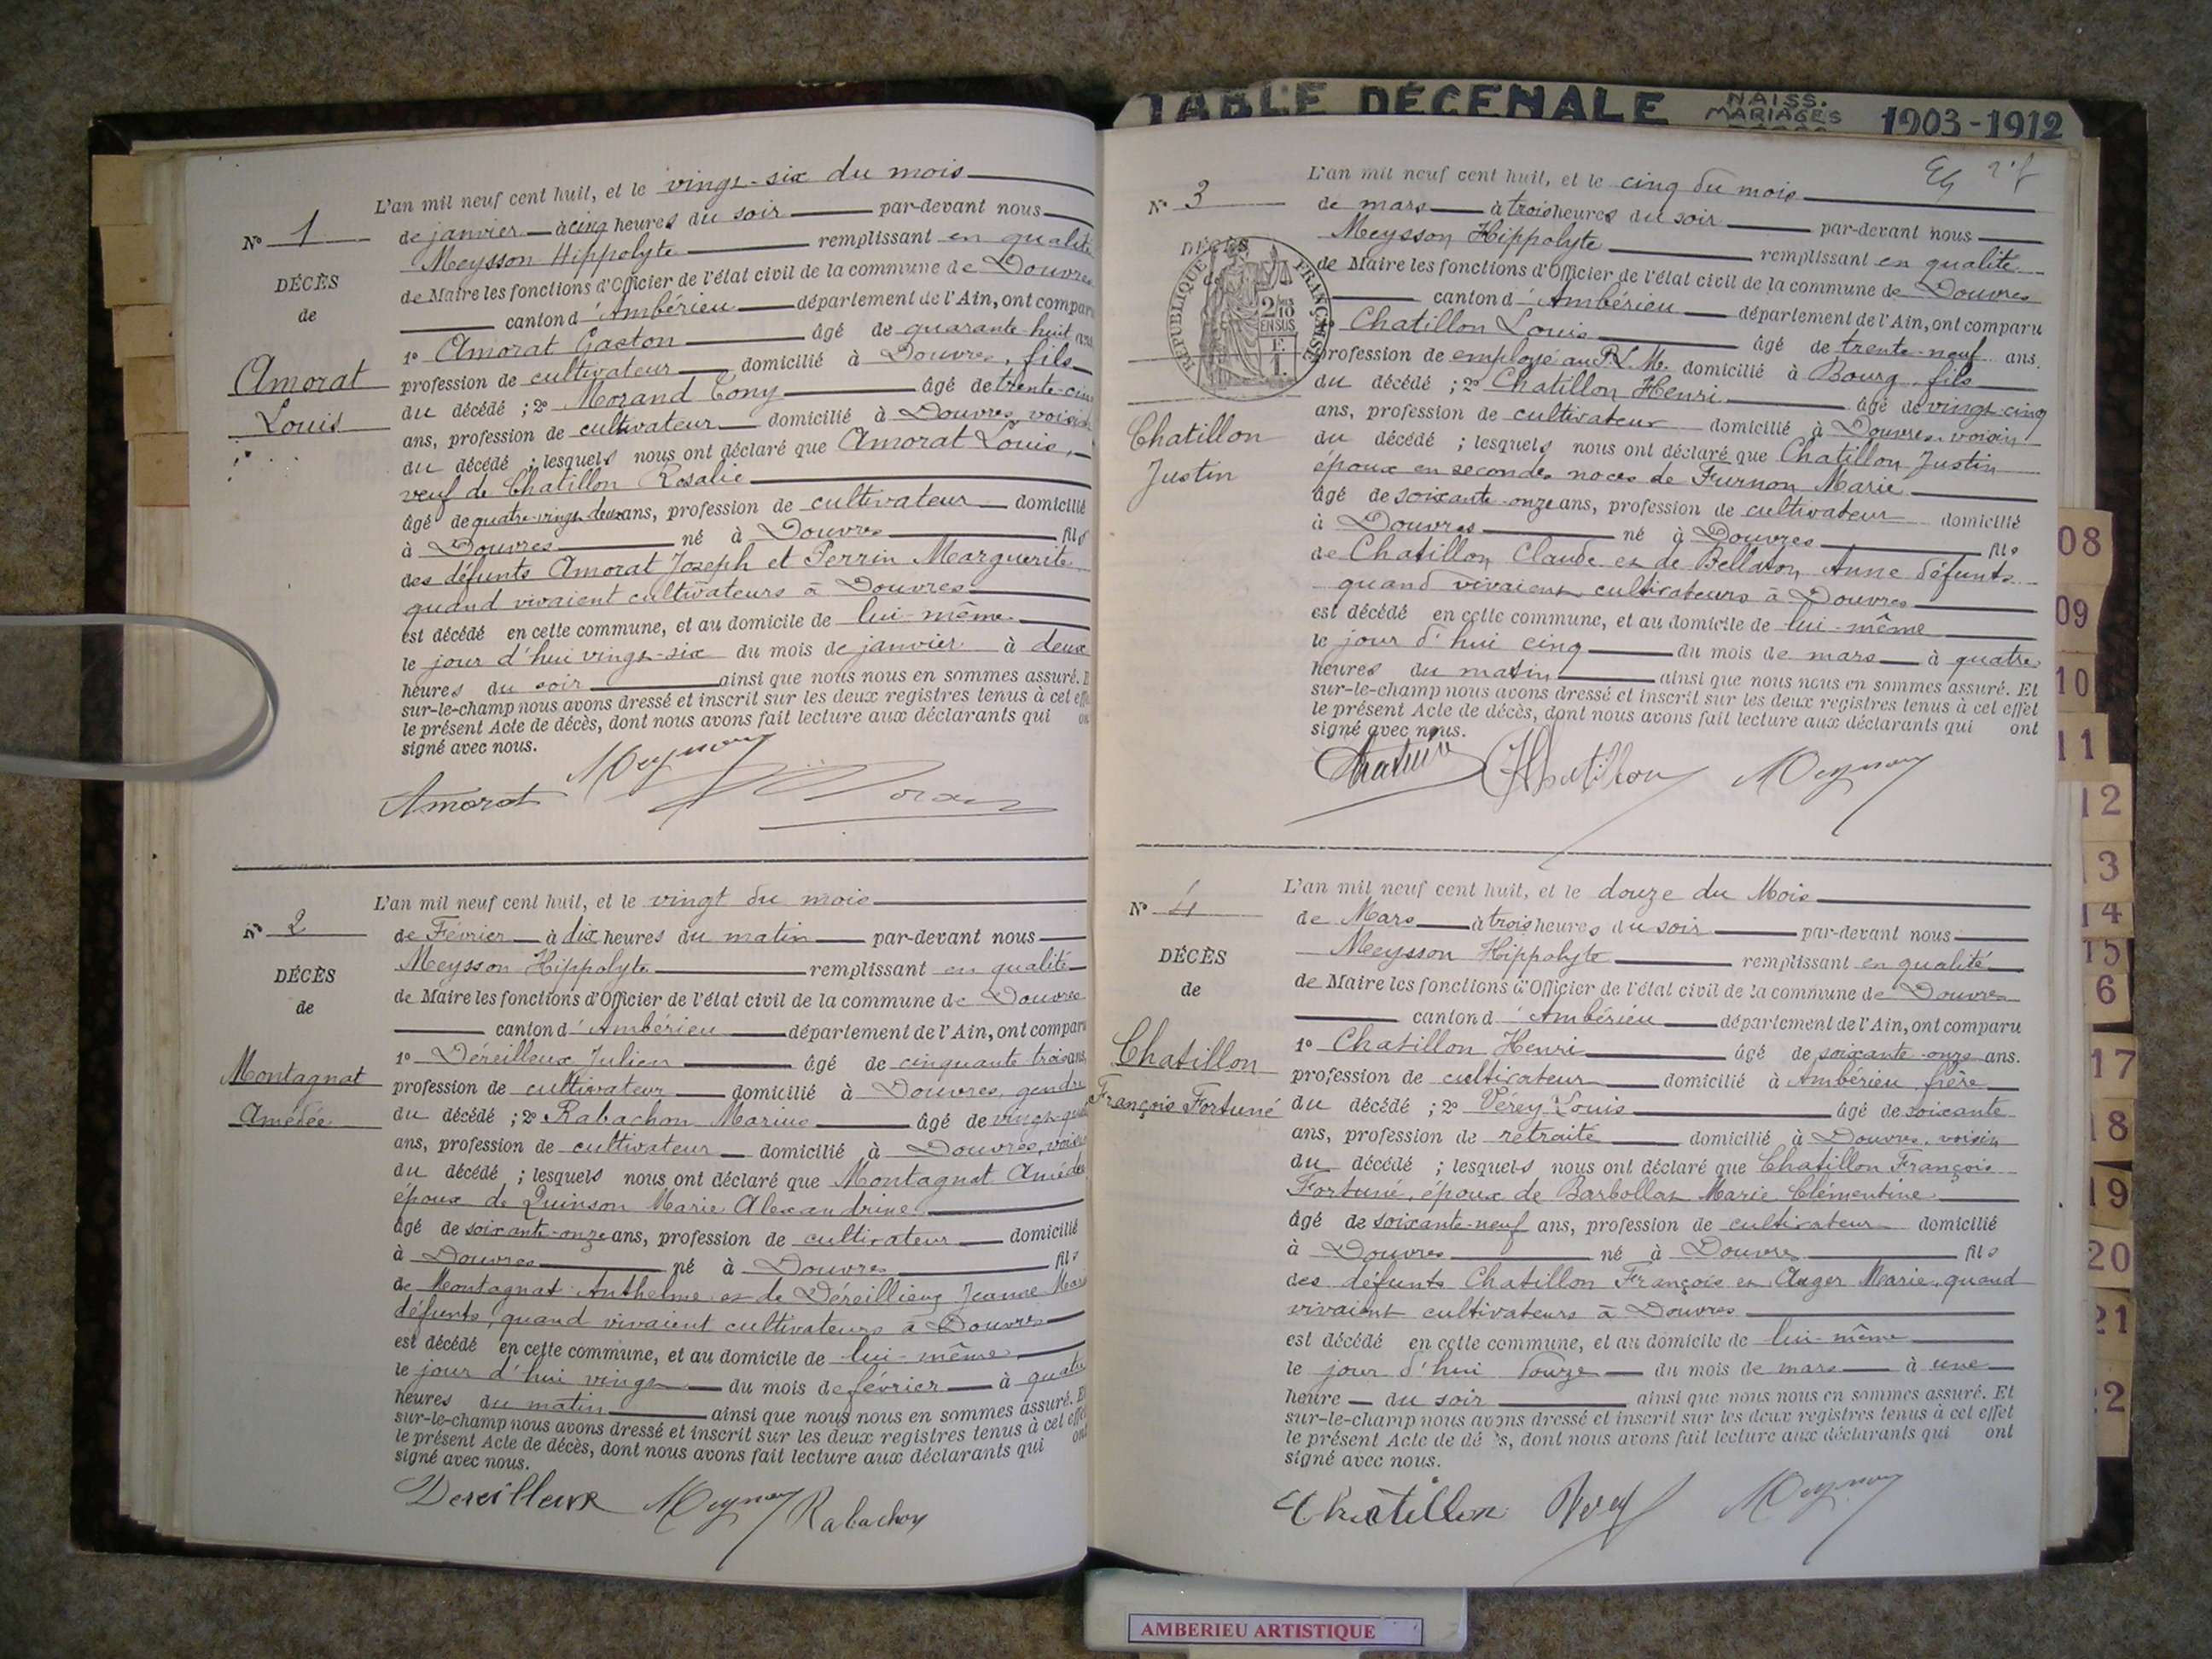 TABLE DÉCENALE NAISS. MARIAGES 1903-1912
L'an mil neuf cent huit, et le vingt-six du mois
Nº 1
de janvier à cinq heures du soir par-devant nous
Meysson Hippolyte remplissant en qualité
de Maire les fonctions d'Officier de l'état civil de la commune de Douvres
canton d'Ambérieu département de l'Ain, ont compar
1º Amorat Gaston âgé de quarante-huit ans
profession de cultivateur domicilié à Douvres, fils
du décédé ; 2º Morand Tony âgé de trente-cinq
ans, profession de cultivateur domicilié à Douvres, voisin
du décédé ; lesquels nous ont déclaré que Amorat Louis,
veuf de Chatillon Rosalie
âgé de quatre-vingt-deux ans, profession de cultivateur domicilié
à Douvres né à Douvres fils
des défunts Amorat Joseph et Perrin Marguerite
quand vivaient cultivateurs à Douvres
est décédé en cette commune, et au domicile de lui-même
le jour d'hui vingt-six du mois de janvier à deux
heures du soir ainsi que nous nous en sommes assuré. E
sur-le-champ nous avons dressé et inscrit sur les deux registres tenus à cet effe
le présent Acte de décès, dont nous avons fait lecture aux déclarants qui on
signé avec nous.
DÉCÈS
de
Amorat
Louis
Amorat Meysson
L'an mil neuf cent huit, et le vingt du mois
Nº 2
de Février à dix heures du matin par-devant nous
Meysson Hippolyte remplissant en qualité
de Maire les fonctions d'Officier de l'état civil de la commune de Douvres
canton d'Ambérieu département de l'Ain, ont comparu
1º Déreilleux Julien âgé de cinquante-trois ans
profession de cultivateur domicilié à Douvres, gendre
du décédé ; 2º Rabachon Marius âgé de vingt-qua
ans, profession de cultivateur domicilié à Douvres, voisin
du décédé ; lesquels nous ont déclaré que Montagnat Amédée
époux de Quinson Marie Alexandrine
âgé de soixante-onze ans, profession de cultivateur domicilié
à Douvres né à Douvres fils
de Montagnat Anthelme et de Déreillieux Jeanne Marie
défunts, quand vivaient cultivateurs à Douvres
est décédé en cette commune, et au domicile de lui-même
le jour d'hui vingt du mois de février à quatre
heures du matin ainsi que nous nous en sommes assuré. Et
sur-le-champ nous avons dressé et inscrit sur les deux registres tenus à cet effet
le présent Acte de décès, dont nous avons fait lecture aux déclarants qui ont
signé avec nous.
DÉCÈS
de
Montagnat
Amédée
Dereilleux Meysson Rabachon
L'an mil neuf cent huit, et le cinq du mois
Nº 3
de mars à trois heures du soir par-devant nous
Meysson Hippolyte remplissant en qualité
de Maire les fonctions d'Officier de l'état civil de la commune de Douvres
canton d'Ambérieu département de l'Ain, ont comparu
Chatillon Louis âgé de trente-neuf ans.
profession de employé au P.L.M. domicilié à Bourg, fils
du décédé ; 2º Chatillon Henri âgé de vingt-cinq
ans, profession de cultivateur domicilié à Douvres, voisin
du décédé ; lesquels nous ont déclaré que Chatillon Justin
époux en secondes noces de Furnon Marie
âgé de soixante-onze ans, profession de cultivateur domicilié
à Douvres né à Douvres fils
de Chatillon Claude et de Bellaton Anne défunts
quand vivaient cultivateurs à Douvres
est décédé en cette commune, et au domicile de lui-même
le jour d'hui cinq du mois de mars à quatre
heures du matin ainsi que nous nous en sommes assuré. Et
sur-le-champ nous avons dressé et inscrit sur les deux registres tenus à cet effet
le présent Acte de décès, dont nous avons fait lecture aux déclarants qui ont
signé avec nous.
DÉCÈS
de
RÉPUBLIQUE FRANÇAISE
2/10
EN SUS
F.
1.
Chatillon
Justin
Chatillon Meysson
L'an mil neuf cent huit, et le douze du Mois
Nº 4
de Mars à trois heures du soir par-devant nous
Meysson Hippolyte remplissant en qualité
de Maire les fonctions d'Officier de l'état civil de la commune de Douvres
canton d'Ambérieu département de l'Ain, ont comparu
1º Chatillon Henri âgé de soixante-onze ans.
profession de cultivateur domicilié à Ambérieu, frère
du décédé ; 2º Vérey Louis âgé de soixante
ans, profession de retraité domicilié à Douvres, voisin
du décédé ; lesquels nous ont déclaré que Chatillon François
Fortuné, époux de Barbollat Marie Clémentine
âgé de soixante-neuf ans, profession de cultivateur domicilié
à Douvres né à Douvres fils
des défunts Chatillon François et Auger Marie, quand
vivaient cultivateurs à Douvres
est décédé en cette commune, et au domicile de lui-même
le jour d'hui douze du mois de mars à une
heure du soir ainsi que nous nous en sommes assuré. Et
sur-le-champ nous avons dressé et inscrit sur les deux registres tenus à cet effet
le présent Acte de décès, dont nous avons fait lecture aux déclarants qui ont
signé avec nous.
DÉCÈS
de
Chatillon
François Fortuné
Chatillon Verey Meysson
08
09
10
11
12
13
14
15
16
17
18
19
20
21
22
AMBERIEU ARTISTIQUE